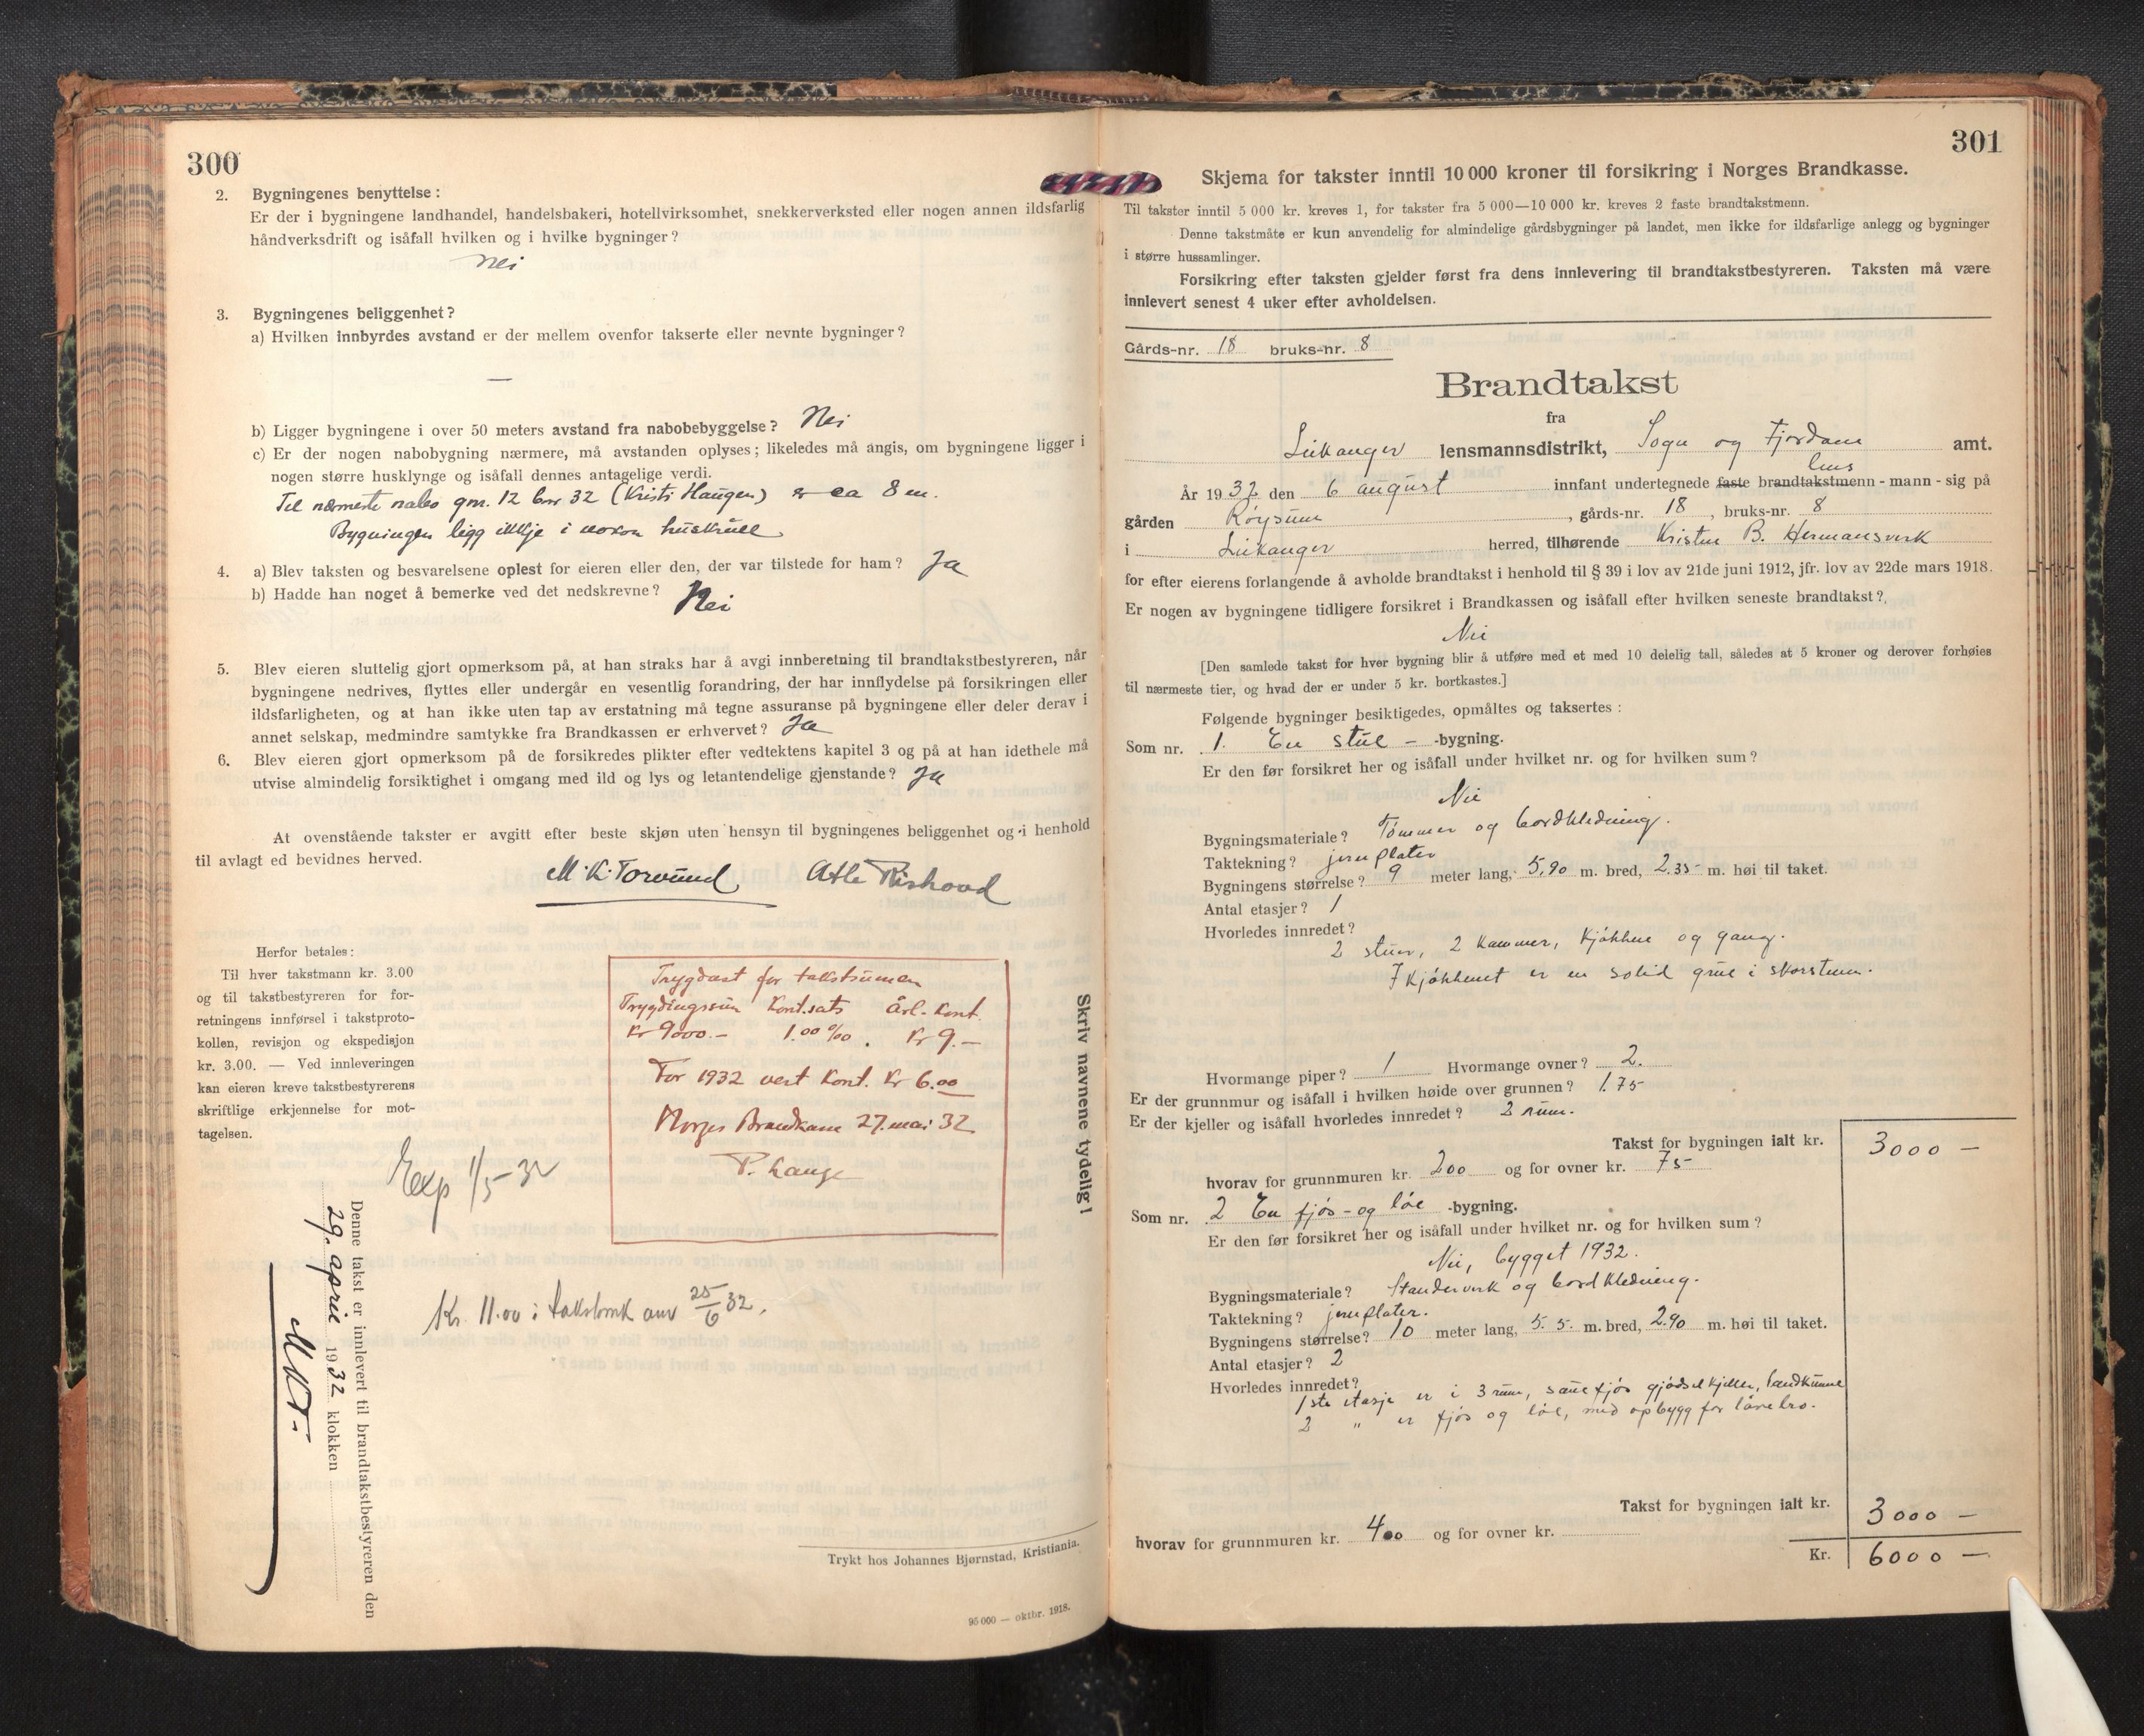 300
2. Bygningenes benyttelse:
Er der i bygningene landhandel, handelsbakeri, hotellvirksomhet, snekkerverksted eller nogen annen ildsfarlig
håndverksdrift og isåfall hvilken og i hvilke bygninger?
Nei
3. Bygningenes beliggenhet?
a) Hvilken innbyrdes avstand er der mellem ovenfor takserte eller nevnte bygninger?
—
b) Ligger bygningene i over 50 meters avstand fra nabobebyggelse? Nei
c) Er der nogen nabobygning nærmere, må avstanden oplyses; likeledes må angis, om bygningene ligger i
nogen større husklynge og isåfall dennes antagelige verdi.
Til nærmeste nabo gnr. 12 bnr 32 (Kristi Haugen) er ca 8 m.
Bygningen ligg ikkje i nokon huskrull
4. a) Blev taksten og besvarelsene oplest for eieren eller den, der var tilstede for ham? Ja
b) Hadde han noget å bemerke ved det nedskrevne? Nei
5. Blev eieren sluttelig gjort opmerksom på, at han straks har å avgi innberetning til brandtakstbestyreren, når
bygningene nedrives, flyttes eller undergår en vesentlig forandring, der har innflydelse på forsikringen eller
ildsfarligheten, og at han ikke uten tap av erstatning må tegne assuranse på bygningene eller deler derav i
annet selskap, medmindre samtykke fra Brandkassen er erhvervet? Ja
6. Blev eieren gjort opmerksom på de forsikredes plikter efter vedtektens kapitel 3 og på at han idethele må
utvise almindelig forsiktighet i omgang med ild og lys og letantendelige gjenstande? Ja
At ovenstående takster er avgitt efter beste skjøn uten hensyn til bygningenes beliggenhet og i henhold
til avlagt ed bevidnes herved.
M. K. Torvund Atle Riskovd
Herfor betales:
Til hver takstmann kr. 3.00
og til takstbestyreren for for-
retningens innførsel i takstproto-
kollen, revisjon og ekspedisjon
kr. 3.00. — Ved innleveringen
kan eieren kreve takstbestyrerens
skriftlige erkjennelse for mot-
tagelsen.
Trygdast for takstsumen
Trygdingssum Kont.sats Årl. Kont.
Kr 9000.- 1.00 ‰. Kr 9.—
For 1932 vert Kont. Kr 6.00
Norges Brandkasse 27. mai 32
P. Lange
Skriv navnene tydelig!
Exp 1/5-32
Kr. 11.00 i 25/6 32.
Denne takst er innlevert til brandtakstbestyreren den
29. april 1932 klokken
M K T.
Trykt hos Johannes Bjørnstad, Kristiania.
95 000 — oktbr. 1918.
301
Skjema for takster inntil 10 000 kroner til forsikring i Norges Brandkasse.
Til takster inntil 5 000 kr. kreves 1, for takster fra 5 000—10 000 kr. kreves 2 faste brandtakstmenn.
Denne takstmåte er kun anvendelig for almindelige gårdsbygninger på landet, men ikke for ildsfarlige anlegg og bygninger
i større hussamlinger.
Forsikring efter taksten gjelder først fra dens innlevering til brandtakstbestyreren. Taksten må være
innlevert senest 4 uker efter avholdelsen.
Gårds-nr. 18 bruks-nr. 8
Brandtakst
fra
Leikanger lensmannsdistrikt, Sogn og Fjordane amt.
År 1932 den 6 august innfant undertegnede faste lens brandtakstmenn - mann - sig på
gården Røysum, gårds-nr. 18, bruks-nr. 8
i Leikanger herred, tilhørende Kristen B. Hermansverk
for efter eierens forlangende å avholde brandtakst i henhold til § 39 i lov av 21de juni 1912, jfr. lov av 22de mars 1918.
Er nogen av bygningene tidligere forsikret i Brandkassen og isåfall efter hvilken seneste brandtakst?
Nei
[Den samlede takst for hver bygning blir å utføre med et med 10 delelig tall, således at 5 kroner og derover forhøies
til nærmeste tier, og hvad der er under 5 kr. bortkastes.]
Følgende bygninger besiktigedes, opmåltes og taksertes:
Som nr. 1. En stue - -bygning.
Er den før forsikret her og isåfall under hvilket nr. og for hvilken sum?
Nei
Bygningsmateriale? Tømmer og bordkledning.
Taktekning? jernplater
Bygningens størrelse? 9 meter lang, 5,90 m. bred, 2.35 m. høi til taket.
Antal etasjer? 1
Hvorledes innredet?
2 stuer, 2 kammer, kjøkken og gang.
I kjøkkenet er en solid grue i skorstenen.
Hvormange piper? 1 Hvormange ovner? 2.
Er der grunnmur og isåfall i hvilken høide over grunnen? 1.75
Er der kjeller og isåfall hvorledes innredet? 2 rum.
Takst for bygningen ialt kr. 3000 —
hvorav for grunnmuren kr. 200 og for ovner kr. 75
Som nr. 2 En fjøs- og løe -bygning.
Er den før forsikret her og isåfall under hvilket nr. og for hvilken sum?
Nei, bygget 1932.
Bygningsmateriale? Standerverk og bordkledning.
Taktekning? jernplater.
Bygningens størrelse? 10 meter lang, 5.5. m. bred, 2.90 m. høi til taket.
Antal etasjer? 2
Hvorledes innredet?
1ste etasje er i 3 rum, sauefjøs gjødselkjeller, landkumme
2 " er fjøs og løe, med opbygg for låvebro.
Takst for bygningen ialt kr. 3000 —
hvorav for grunnmuren kr. 400 og for ovner kr.
Kr. 6000 —